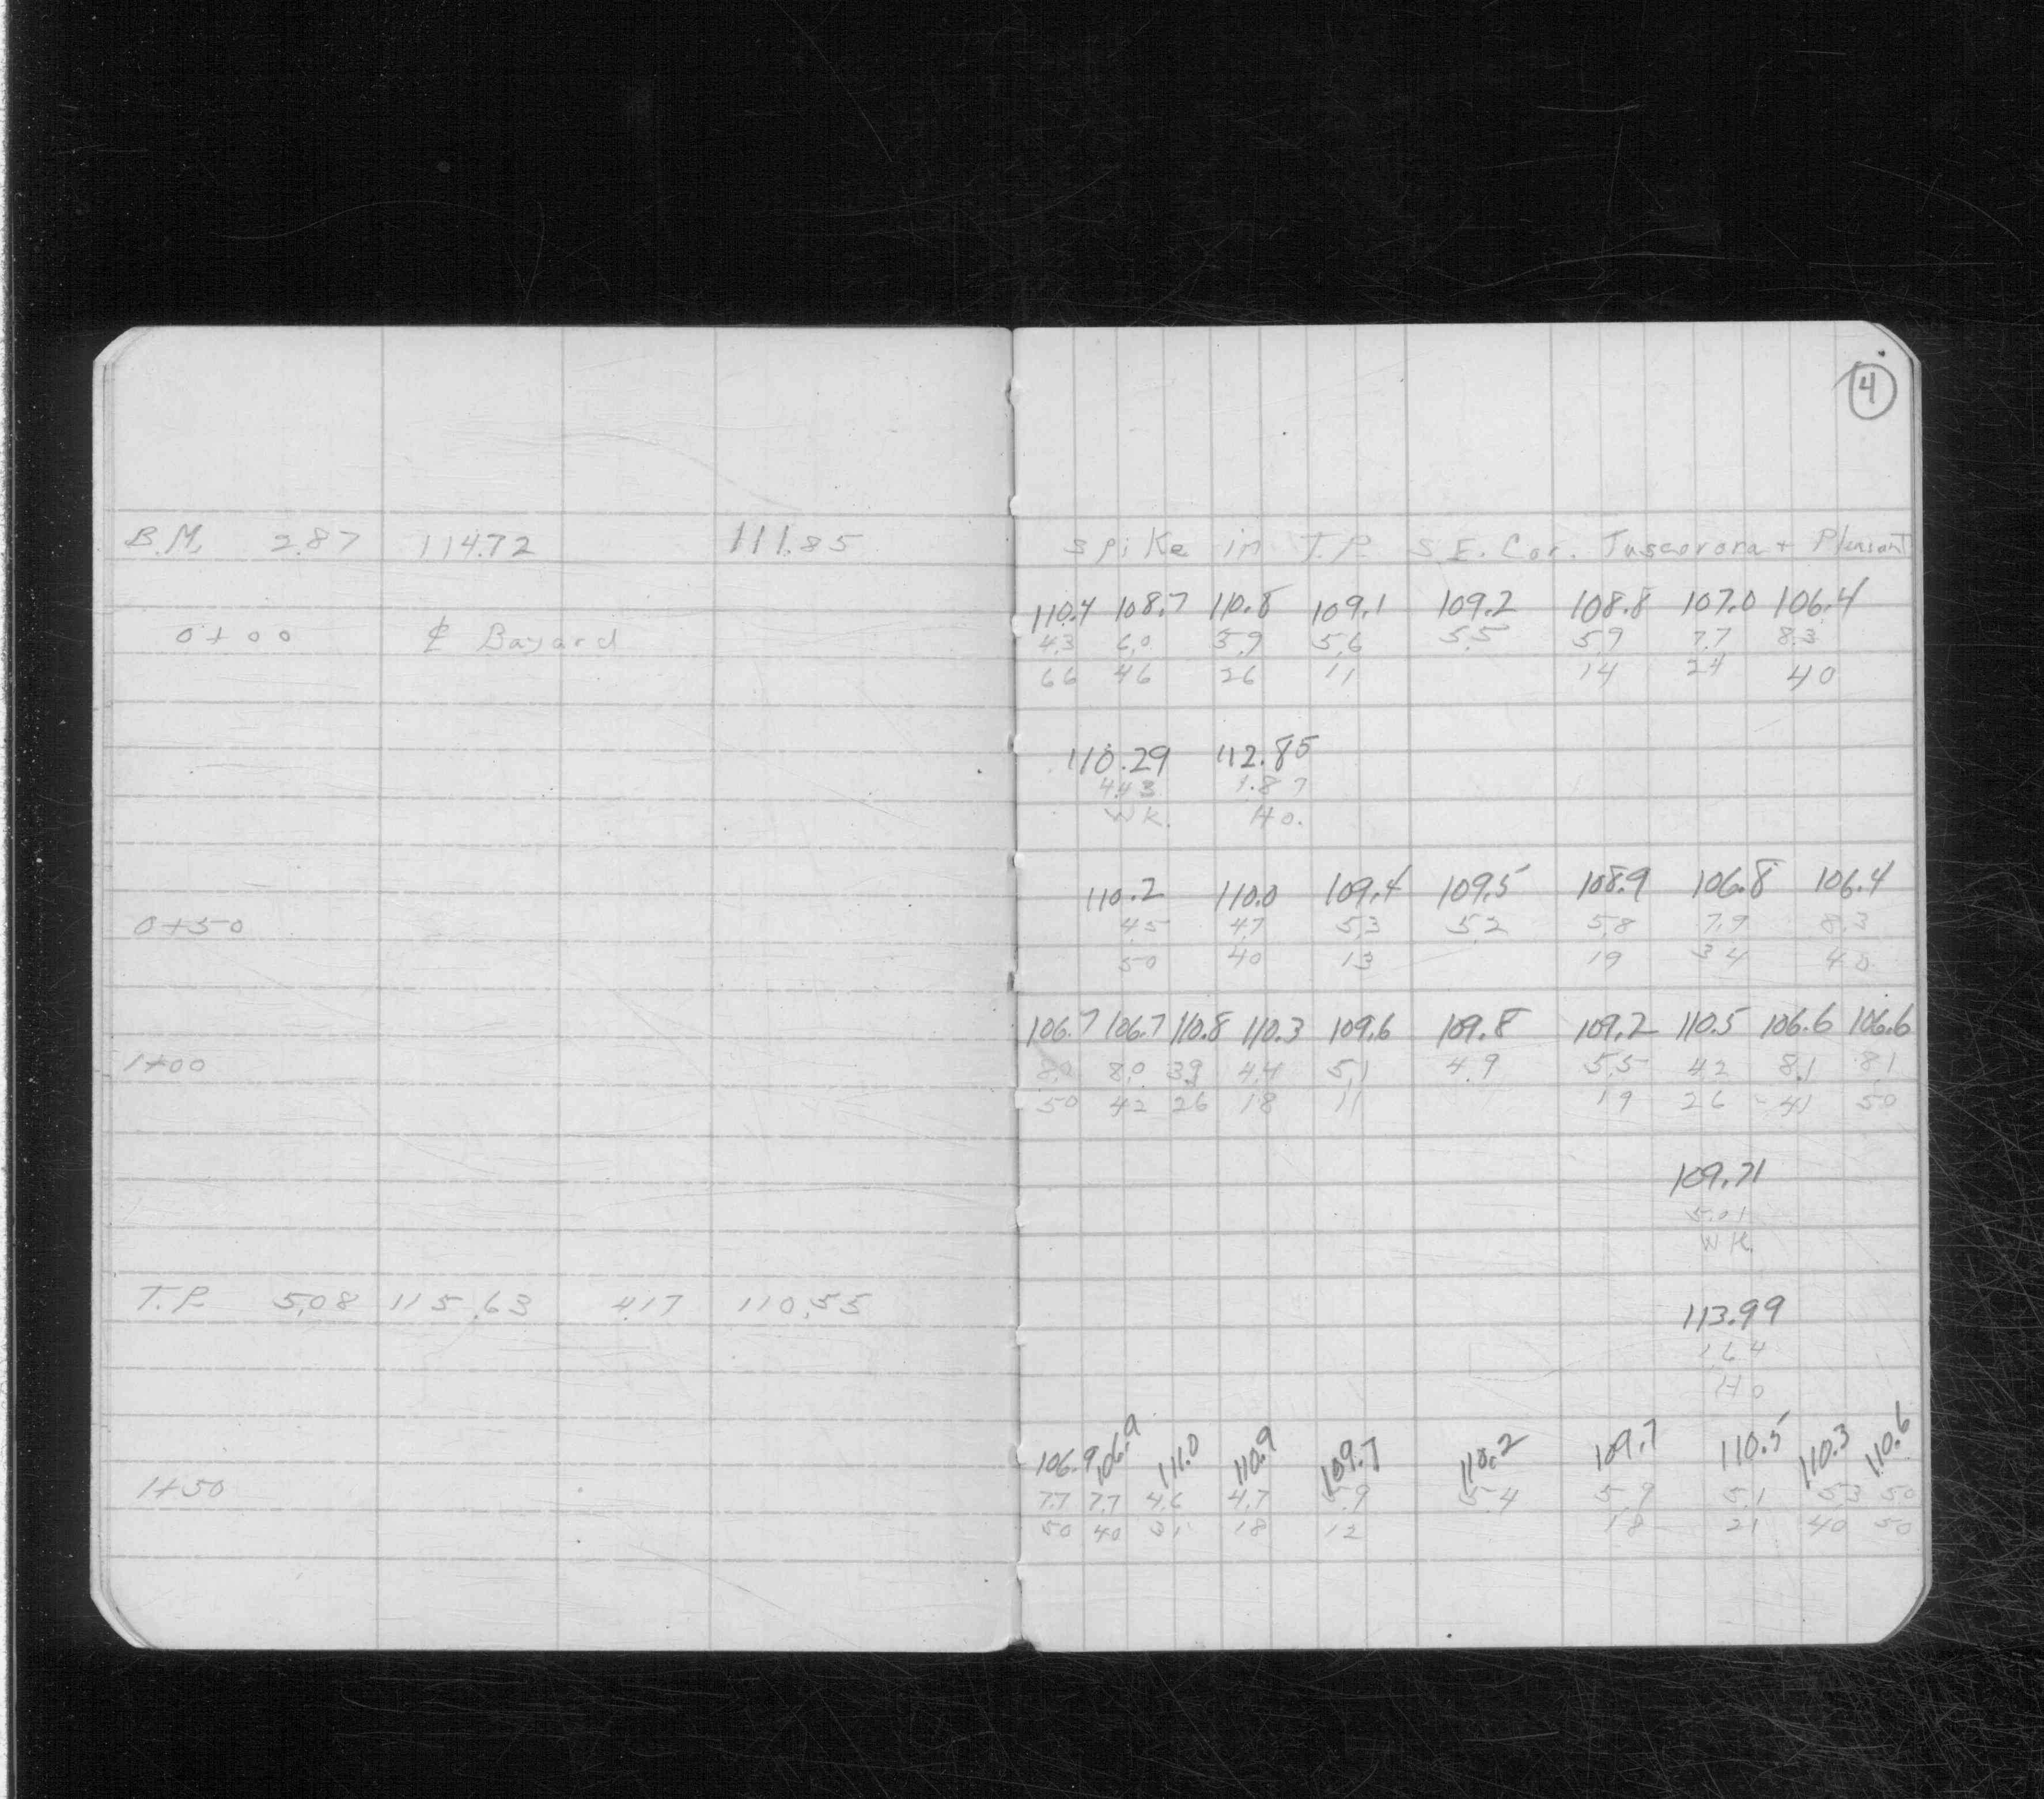 4
B.M. 2.87 114.72 111.85 Spike in T.P. S.E. Cor. Tuscorora + Pleasant
110.4 108.7 110.8 109.1 109.2 108.8 107.0 106.4
0+00 ℄ Bayard 4.3 6.0 3.9 5.6 5.5 5.9 7.7 8.3
66 46 26 11 14 24 40
110.29 112.85
4.43 1.87
WK. Ho.
110.2 110.0 109.4 109.5 108.9 106.8 106.4
0+50 4.5 4.7 5.3 5.2 5.8 7.9 8.3
50 40 13 19 34 40
106.7 106.7 110.8 110.3 109.6 109.8 109.2 110.5 106.6 106.6
1+00 8.0 8.0 3.9 4.4 5.1 4.9 5.5 4.2 8.1 8.1
50 42 26 18 11 19 26 41 50
109.71
5.01
WK.
T.P. 5.08 115.63 4.17 110.55 113.99
1.64
Ho
106.9 106.9 111.0 110.9 109.7 110.2 109.7 110.5 110.3 110.6
1+50 7.7 7.7 4.6 4.7 5.9 5.4 5.9 5.1 5.3 5.0
50 40 31 18 12 18 21 40 50